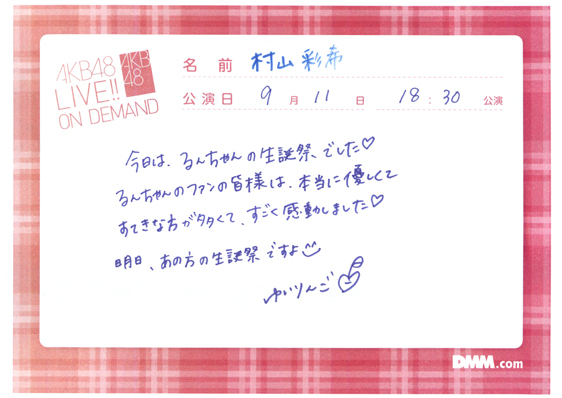 AKB48
LIVE!!
ON DEMAND
AKB
48
名前 村山彩希
公演日 9月11日 18:30 公演
今日は、るんちゃんの生誕祭でした♡
るんちゃんのファンの皆様は、本当に優しくて
すてきな方が多くて、すごく感動しました♡
明日、あの方の生誕祭ですよ
ゆいりんご
DMM.com